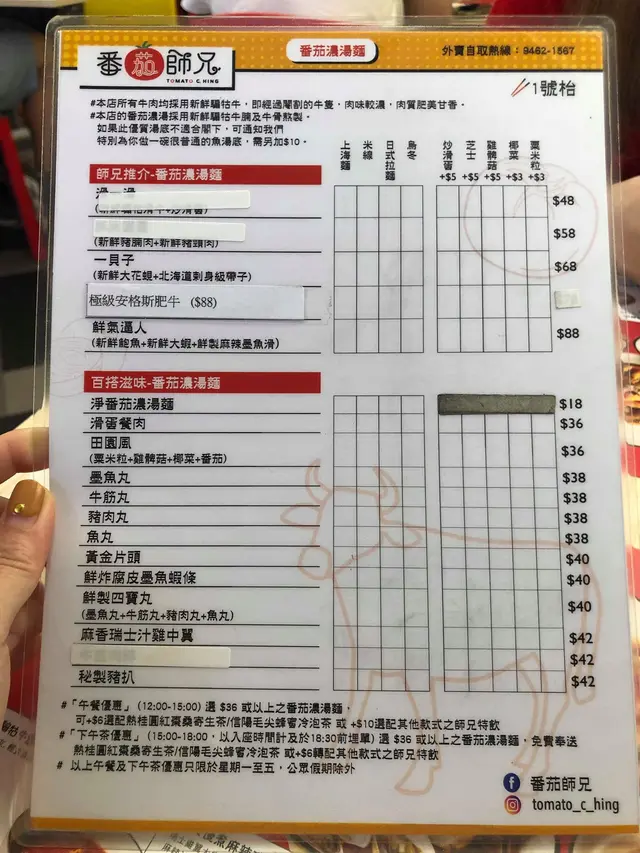 番茄師兄
TOMATO C. HING
番茄濃湯麵
外賣自取熱線：9462-1567
1號枱
#本店所有牛肉均採用新鮮騸牯牛，即經過閹割的牛隻，肉味較濃，肉質肥美甘香。
#本店的番茄濃湯採用新鮮騸牯牛腩及牛骨熬製。
如果此優質湯底不適合閣下，可通知我們
特別為你做一碗很普通的魚湯底，需另加$10。
上海麵 米線 日式拉麵 烏冬 炒滑蛋+$5 芝士+$5 雞髀菇+$5 椰菜+$3 粟米粒+$3
師兄推介-番茄濃湯麵
$48
(新鮮豬腩肉+新鮮豬頸肉) $58
一貝子 $68
(新鮮大花蝦+北海道刺身級帶子)
極級安格斯肥牛 ($88)
鮮氣逼人 $88
(新鮮鮑魚+新鮮大蝦+鮮製麻辣墨魚滑)
百搭滋味-番茄濃湯麵
淨番茄濃湯麵 $18
滑蛋餐肉 $36
田園風 $36
(粟米粒+雞髀菇+椰菜+番茄)
墨魚丸 $38
牛筋丸 $38
豬肉丸 $38
魚丸 $38
黃金片頭 $40
鮮炸腐皮墨魚蝦條 $40
鮮製四寶丸 $40
(墨魚丸+牛筋丸+豬肉丸+魚丸)
麻香瑞士汁雞中翼 $42
$42
秘製豬扒 $42
#「午餐優惠」(12:00-15:00) 選 $36 或以上之番茄濃湯麵，
可+$6選配熱桂圓紅棗桑寄生茶/信陽毛尖蜂蜜冷泡茶 或 +$10選配其他款式之師兄特飲
#「下午茶優惠」(15:00-18:00，以入座時間計及於18:30前埋單) 選 $36 或以上之番茄濃湯麵，免費奉送
熱桂圓紅棗桑寄生茶/信陽毛尖蜂蜜冷泡茶 或 +$6轉配其他款式之師兄特飲
# 以上午餐及下午茶優惠只限於星期一至五，公眾假期除外
番茄師兄
tomato_c_hing